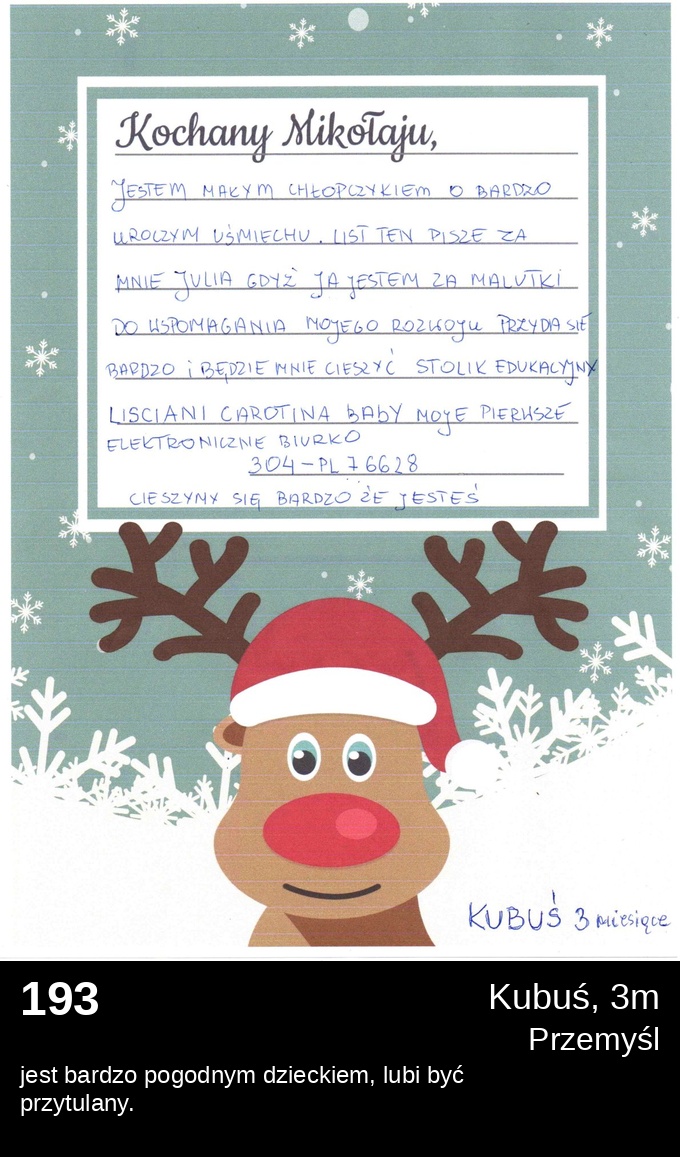 Kochany Mikołaju,
JESTEM MAŁYM CHŁOPCZYKIEM O BARDZO
UROCZYM UŚMIECHU. LIST TEN PISZE ZA
MNIE JULIA GDYŻ JA JESTEM ZA MALUTKI
DO WSPOMAGANIA MOJEGO ROZWOJU PRZYDA SIĘ
BARDZO i BĘDZIE MNIE CIESZYĆ STOLIK EDUKACYJNY
LISCIANI CAROTINA BABY MOJE PIERWSZE
ELEKTRONICZNE BIURKO
304-PL76628
CIESZYMY SIĘ BARDZO ŻE JESTEŚ
KUBUŚ 3 miesiące
193
Kubuś, 3m
Przemyśl
jest bardzo pogodnym dzieckiem, lubi być
przytulany.